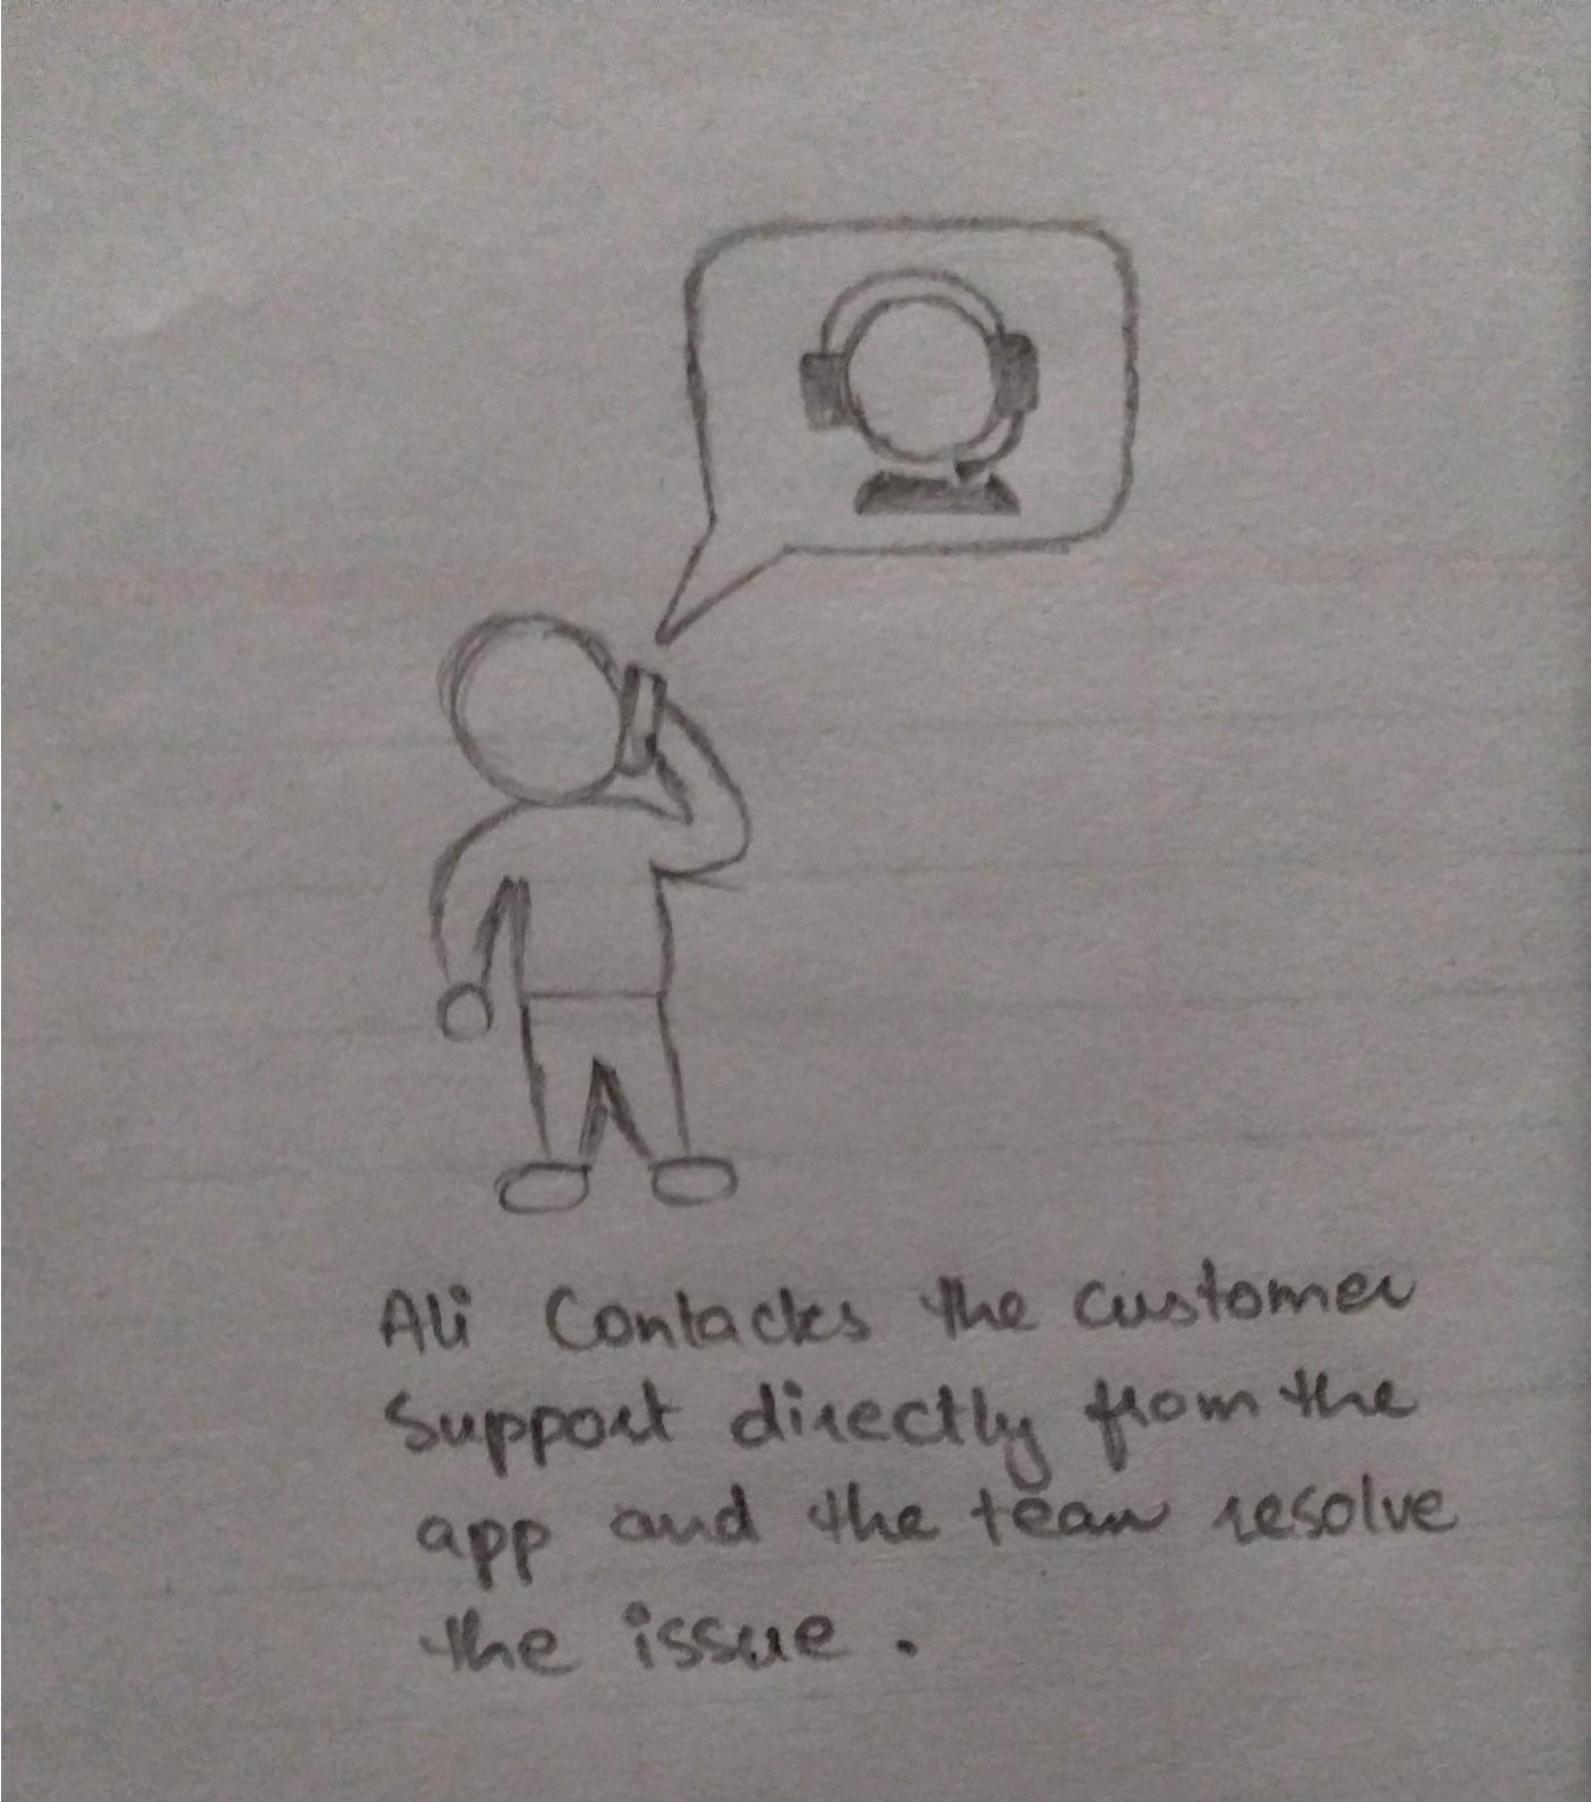 Ali Contackes the customer
Support directly from the
app and the team resolve
the issue.